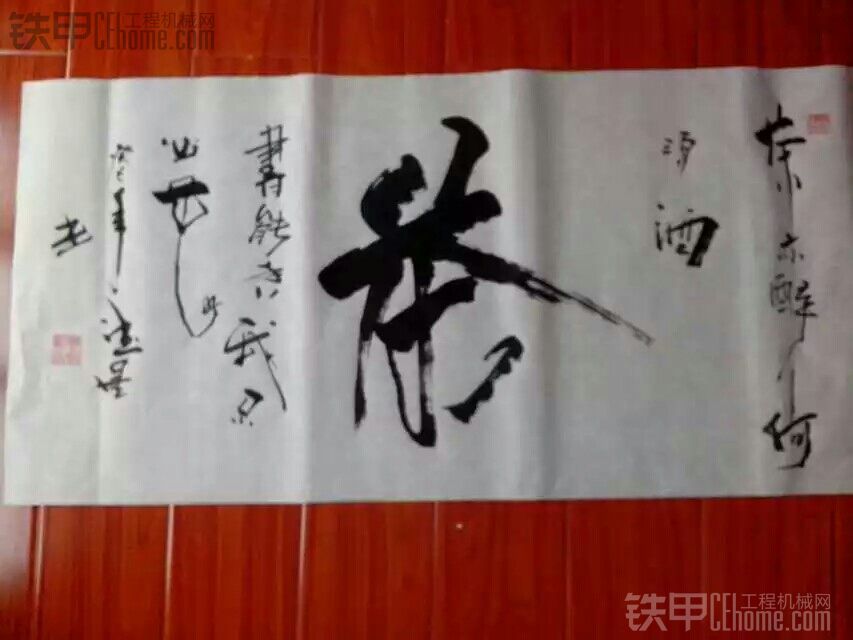 铁甲 工程机械网
CEhome.com
茶亦醉人何
须酒
茶
書能香我不
必花
癸巳年
书
铁甲 工程机械网
CEhome.com